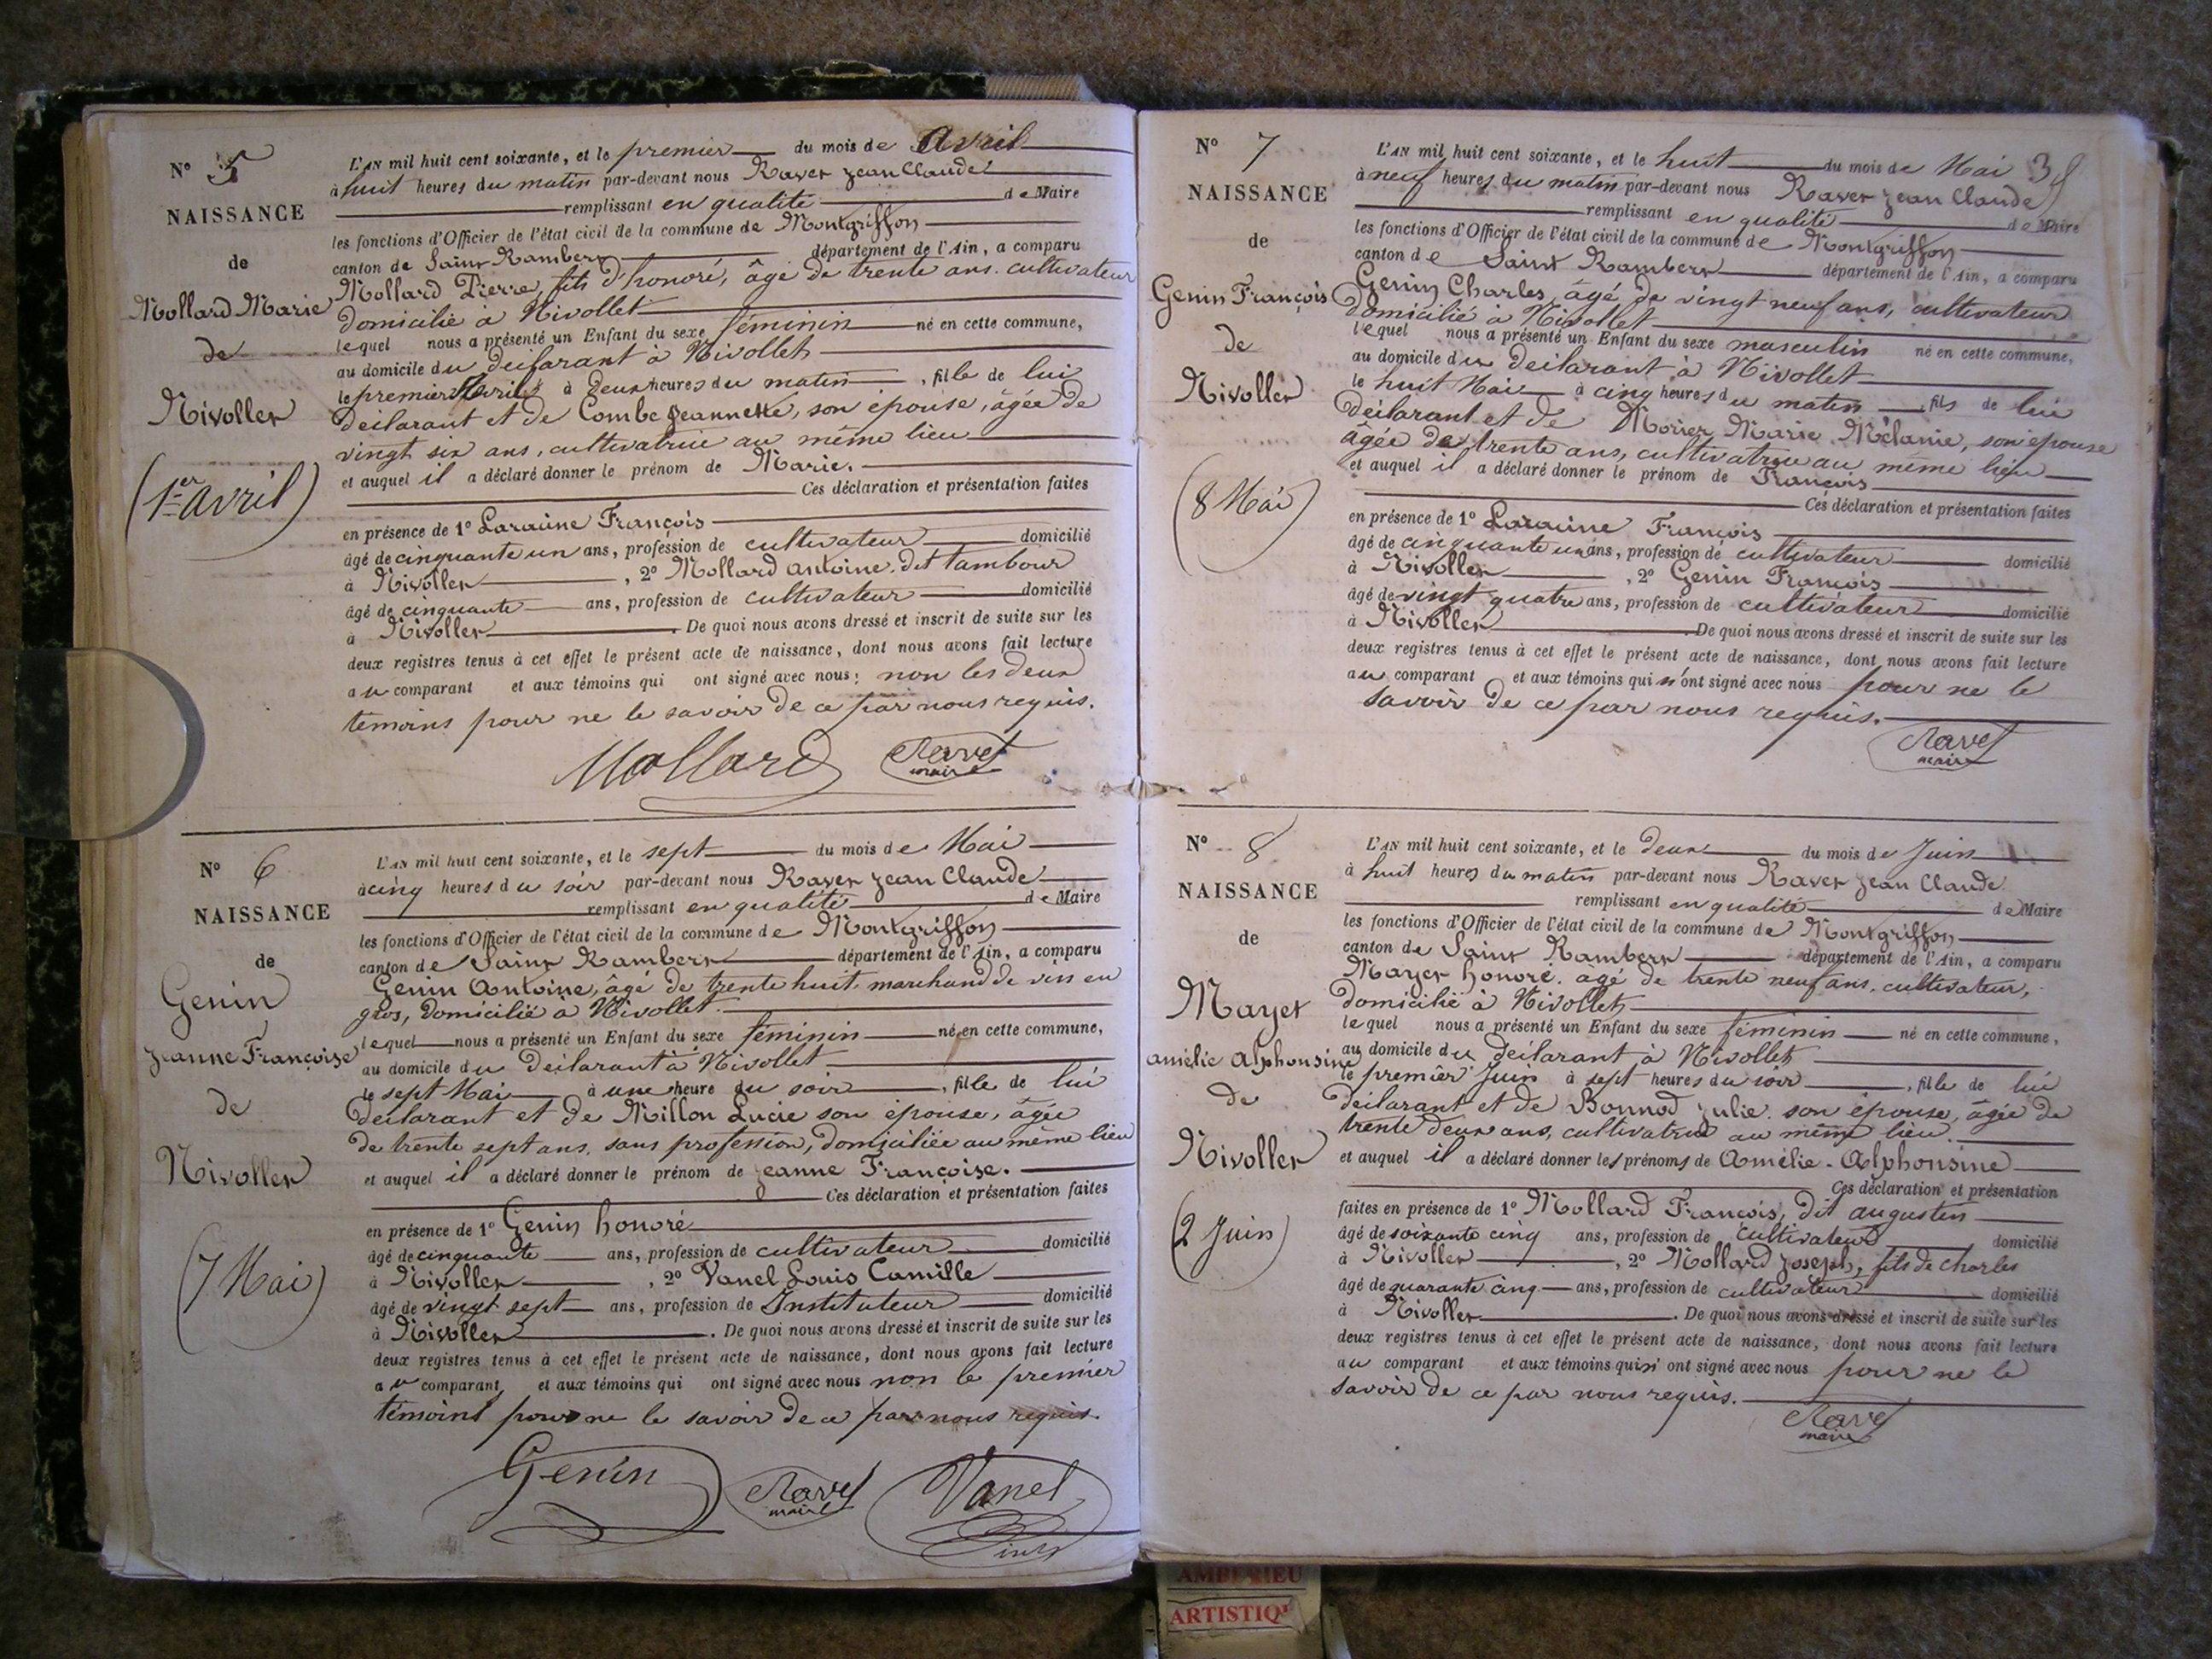 N° 5
NAISSANCE
de
Mollard Marie
de
Nivollet
(1er avril)
L'AN mil huit cent soixante, et le premier du mois de Avril
à huit heures du matin par-devant nous Ravet Jean Claude
remplissant en qualité de Maire
les fonctions d'Officier de l'état civil de la commune de Montgriffon
canton de Saint Rambert département de l'Ain, a comparu
Mollard Pierre, fils d'honoré, âgé de trente ans. cultivateur
domicilié à Nivollet
lequel nous a présenté un Enfant du sexe féminin né en cette commune,
au domicile du déclarant à Nivollet
le premier Avril à deux heures du matin, fille de lui
déclarant et de Combe Jeannette, son épouse, âgée de
vingt six ans, cultivatrice au même lieu
et auquel il a déclaré donner le prénom de Marie.
Ces déclaration et présentation faites
en présence de 1° François
âgé de cinquante un ans, profession de cultivateur domicilié
à Nivollet, 2° Mollard antoine. dit tambour
âgé de cinquante ans, profession de cultivateur domicilié
à Nivollet. De quoi nous avons dressé et inscrit de suite sur les
deux registres tenus à cet effet le présent acte de naissance, dont nous avons fait lecture
au comparant et aux témoins qui ont signé avec nous; non les deux
témoins pour ne le savoir de ce par nous requis.
Mollard Ravet
maire
N° 6
NAISSANCE
de
Genin
Jeanne Françoise
de
Nivollet
(7 Mai)
L'AN mil huit cent soixante, et le sept du mois de Mai
à cinq heures du soir par-devant nous Ravet Jean Claude
remplissant en qualité de Maire
les fonctions d'Officier de l'état civil de la commune de Montgriffon
canton de Saint Rambert département de l'Ain, a comparu
Genin Antoine, âgé de trente huit, marchand de vin en
gros, domicilié à Nivollet.
lequel nous a présenté un Enfant du sexe féminin né en cette commune,
au domicile du déclarant à Nivollet
le sept Mai à une heure du soir, fille de lui
déclarant et de Millon Lucie son épouse, âgée
de trente sept ans, sans profession, domiciliée au même lieu
et auquel il a déclaré donner le prénom de Jeanne Françoise.
Ces déclaration et présentation faites
en présence de 1° Genin honoré
âgé de cinquante ans, profession de cultivateur domicilié
à Nivollet, 2° Vanel Louis Camille
âgé de vingt sept ans, profession de Instituteur domicilié
à Nivollet. De quoi nous avons dressé et inscrit de suite sur les
deux registres tenus à cet effet le présent acte de naissance, dont nous avons fait lecture
au comparant et aux témoins qui ont signé avec nous non le premier
témoins pour ne le savoir de ce par nous requis.
Genin Ravet Vanel
maire
N° 7
NAISSANCE
de
Genin François
de
Nivollet
(8 Mai)
L'AN mil huit cent soixante, et le huit du mois de Mai
à neuf heures du matin par-devant nous Ravet Jean Claude
remplissant en qualité de Maire
les fonctions d'Officier de l'état civil de la commune de Montgriffon
canton de Saint Rambert département de l'Ain, a comparu
Genin Charles, âgé de vingt neuf ans, cultivateur
domicilié à Nivollet
lequel nous a présenté un Enfant du sexe masculin né en cette commune,
au domicile du déclarant à Nivollet
le huit Mai à cinq heures du matin, fils de lui
déclarant et de Morier Marie Mélanie, son épouse
âgée de trente ans, cultivatrice au même lieu
et auquel il a déclaré donner le prénom de François
Ces déclaration et présentation faites
en présence de 1° François
âgé de cinquante un ans, profession de cultivateur domicilié
à Nivollet, 2° Genin François
âgé de vingt quatre ans, profession de cultivateur domicilié
à Nivollet. De quoi nous avons dressé et inscrit de suite sur les
deux registres tenus à cet effet le présent acte de naissance, dont nous avons fait lecture
au comparant et aux témoins qui n'ont signé avec nous pour ne le
savoir de ce par nous requis.
Ravet
maire
N° 8
NAISSANCE
de
Mayet
amélie Alphonsine
de
Nivollet
(2 Juin)
L'AN mil huit cent soixante, et le deux du mois de Juin
à huit heures du matin par-devant nous Ravet Jean Claude
remplissant en qualité de Maire
les fonctions d'Officier de l'état civil de la commune de Montgriffon
canton de Saint Rambert département de l'Ain, a comparu
Mayet honoré. âgé de trente neuf ans, cultivateur,
domicilié à Nivollet
lequel nous a présenté un Enfant du sexe féminin né en cette commune,
au domicile du déclarant à Nivollet
le premier Juin à sept heures du soir, fille de lui
déclarant et de Bonnod Julie. son épouse, âgée de
trente deux ans, cultivatrice au même lieu.
et auquel il a déclaré donner les prénoms de Amélie-Alphonsine
Ces déclaration et présentation
faites en présence de 1° Mollard François, dit augustin
âgé de soixante cinq ans, profession de cultivateur domicilié
à Nivollet, 2° Mollard Joseph, fils de Charles
âgé de quarante cinq ans, profession de cultivateur domicilié
à Nivollet. De quoi nous avons dressé et inscrit de suite sur les
deux registres tenus à cet effet le présent acte de naissance, dont nous avons fait lecture
au comparant et aux témoins qui n'ont signé avec nous pour ne le
savoir de ce par nous requis.
Ravet
maire
AMBERIEU
ARTISTIQ